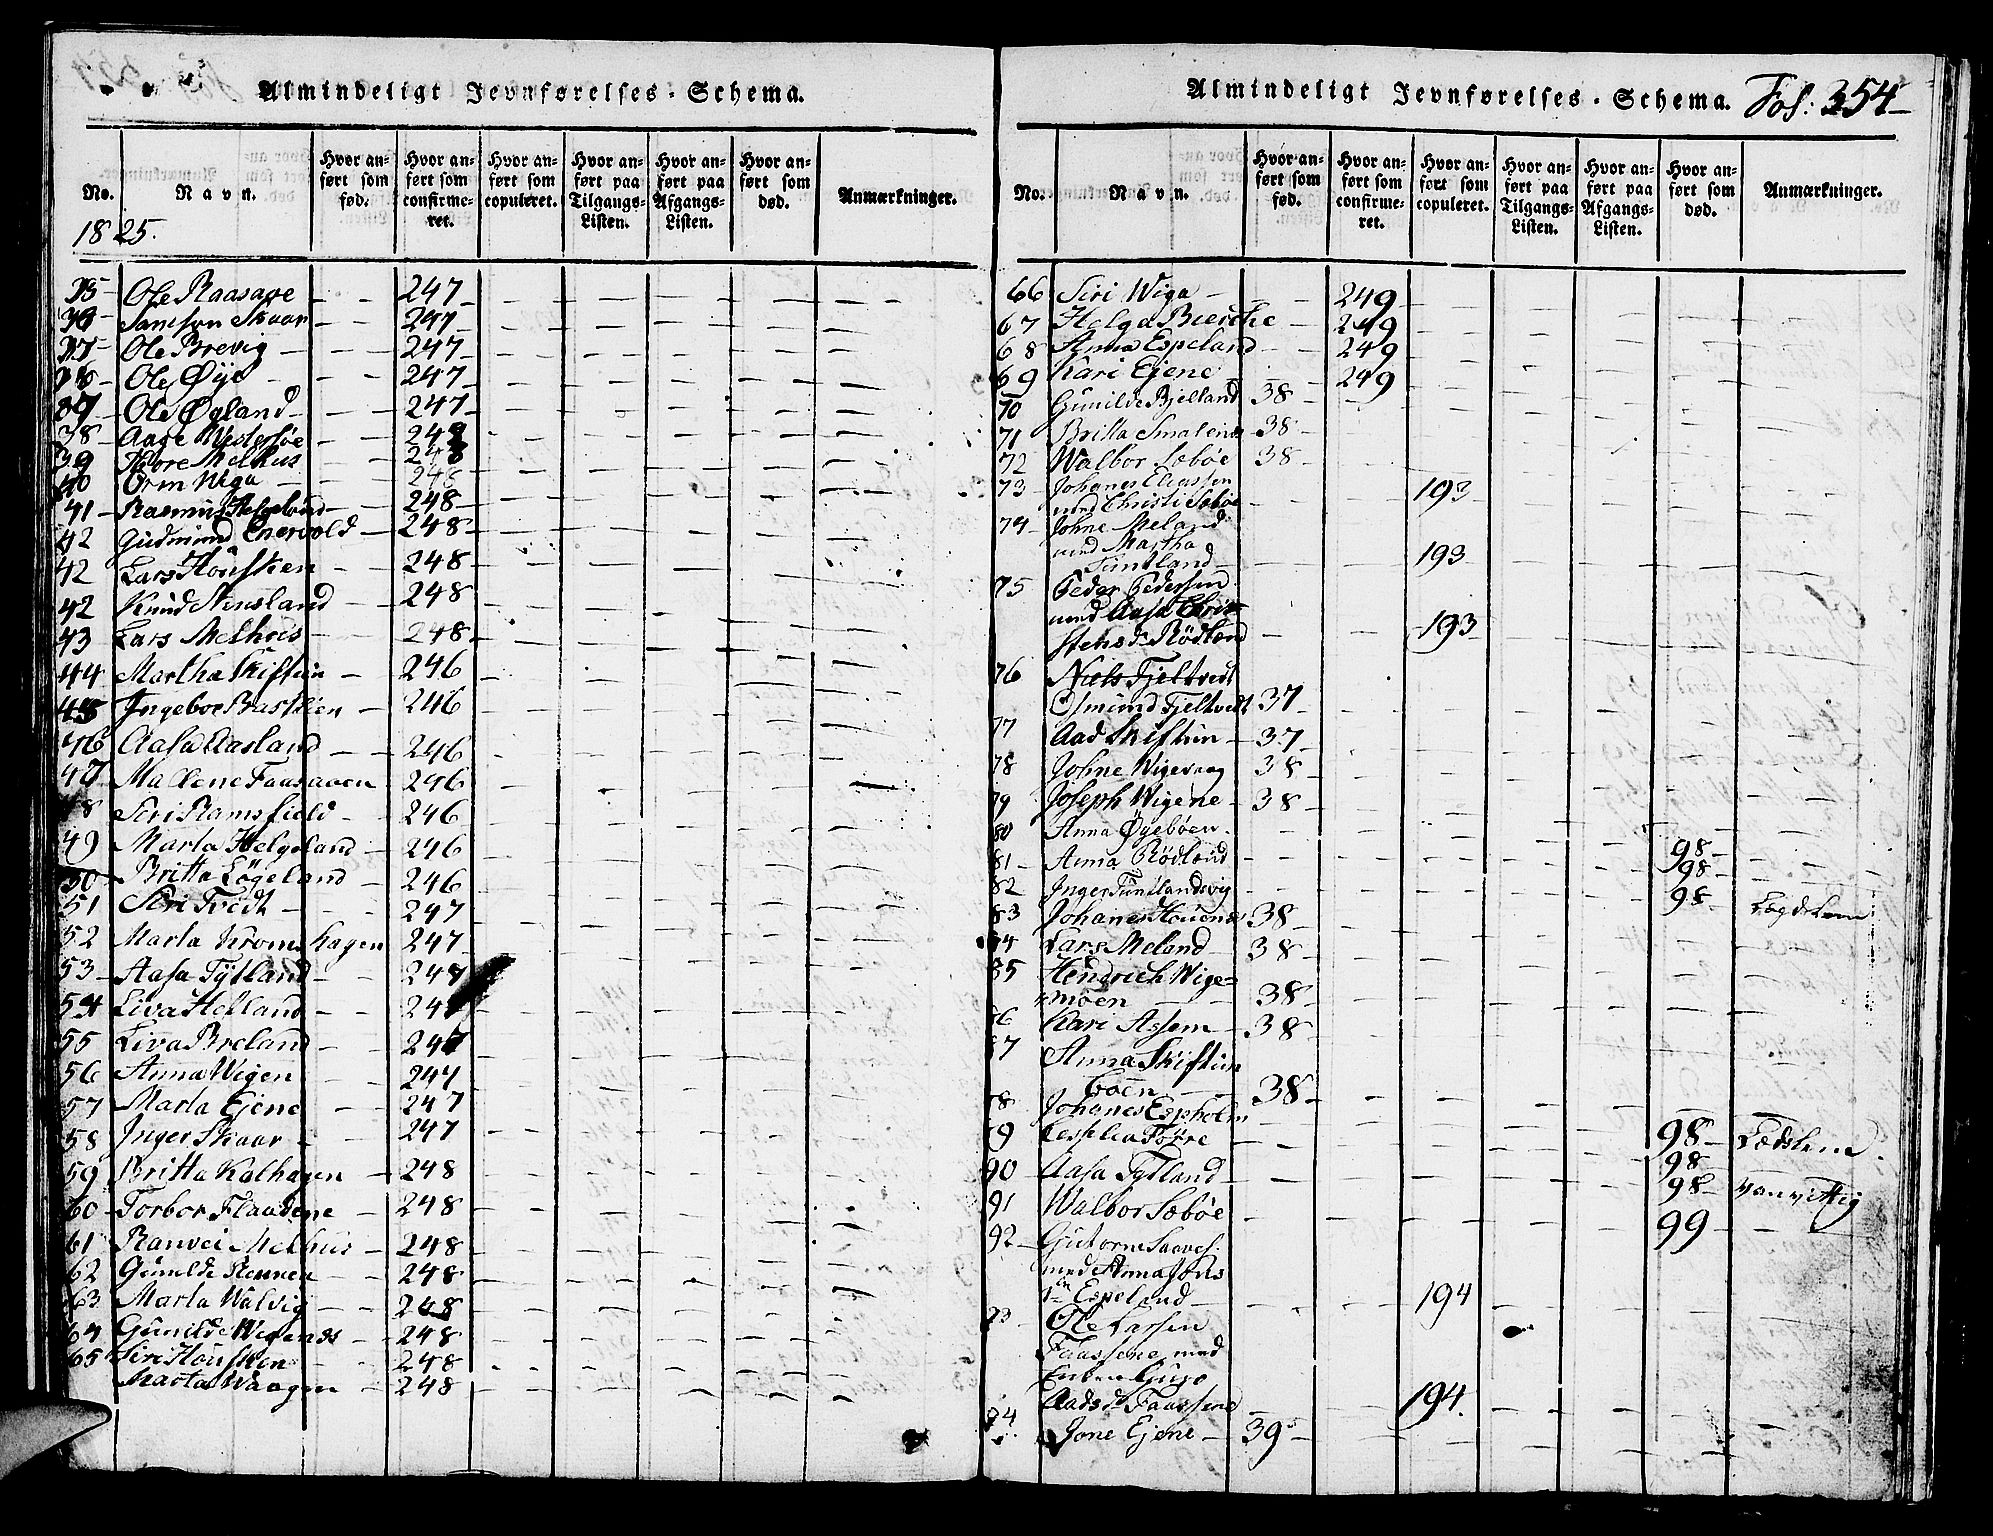 Almindeligt Jevnførelses-Schema.
No.
Navn.
Hvor anført som fød.
Hvor anført som confirmeret.
Hvor anført som copuleret.
Hvor anført paa Tilgangs-Listen.
Hvor anført paa Afgangs-Listen.
Hvor anført som død.
Anmærkninger.
1825.
35 Ole Raasaae 247
36 Samson Skaar 247
37 Ole Brevig 247
Ole Øye 247
37 Ole Øgland 247
38 Aage Westersøe 248
39 Tore Melhus 248
40 Orm Wiga 248
41 Rasmus Helgeland 248
42 Gudmund Enervold 248
42 Lars Housken 248
42 Knud Stensland 248
43 Lars Melhus 248
44 Martha Skiftun 246
45 Ingebor Baskien 246
46 Aasa Aasland 246
47 Mallene Faasaaen 246
48 Siri Ramsfield 246
49 Marta Helgeland 246
50 Britta Løgeland 246
51 Siri Tvedt 247
52 Marta Kromshagen 247
53 Aasa Tytland 247
54 Liva Helland 247
55 Liva Breland 247
56 Anna Wigen 247
57 Marta Ejene 247
58 Inger Skaar 247
59 Britta Kalhagen 248
60 Torbor Flaadene 248
61 Ranvei Melhus 248
62 Gunilde Rennen 248
63 Marta Walvig 248
64 Gunilde Wigenes 248
65 Siri Housken 248
Marta Waagen 248
Almindeligt Jevnførelses-Schema. Fol: 354
No.
Navn.
Hvor anført som fød.
Hvor anført som confirmeret.
Hvor anført som copuleret.
Hvor anført paa Tilgangs-Listen.
Hvor anført paa Afgangs-Listen.
Hvor anført som død.
Anmærkninger.
66 Siri Wiga 249
67 Helga Bierche 249
68 Anna Espeland 249
69 Kari Ejene 249
70 Gunilde Bjelland 38
71 Britta Smalenes 38
72 Walbor Sæbøe 38
73 Johanes Eliassen
med Christi Sæbøe 193
74 Johne Meland
med Martha
Tuntland 193
75 Peder Pedersen
med Aasa Chri
stens D. Rødland 193
76 Niels Fjeltvedt
Osmund Fjeltvedt 37
77 Aad Skiftun 37
78 Johne Wigevaag 38
79 Joseph Wigene 38
80 Anna Øgebøen 98
81 Anna Rødland 98
82 Inger Tuntlandsvig 98 Lægdslem
83 Johanes Houenes 38
84 Lars Meland 38
85 Hendrich Wige-
moen 38
86 Kari Assem 38
87 Anna Skiftun
boen 38
78 Johanes Espholm 98 Lædslem.
79 Cessilia Fore 98
90 Aasa Tytland 98 vanvittig
91 Walbor Sæbøe 99
92 Gutorm Saaves.
med Anna Jons
Espeland 194
93 Ole Larsen
Faassene med
Enken Guro
Aads D. Faassene 194.
94 Jone Ejene 39